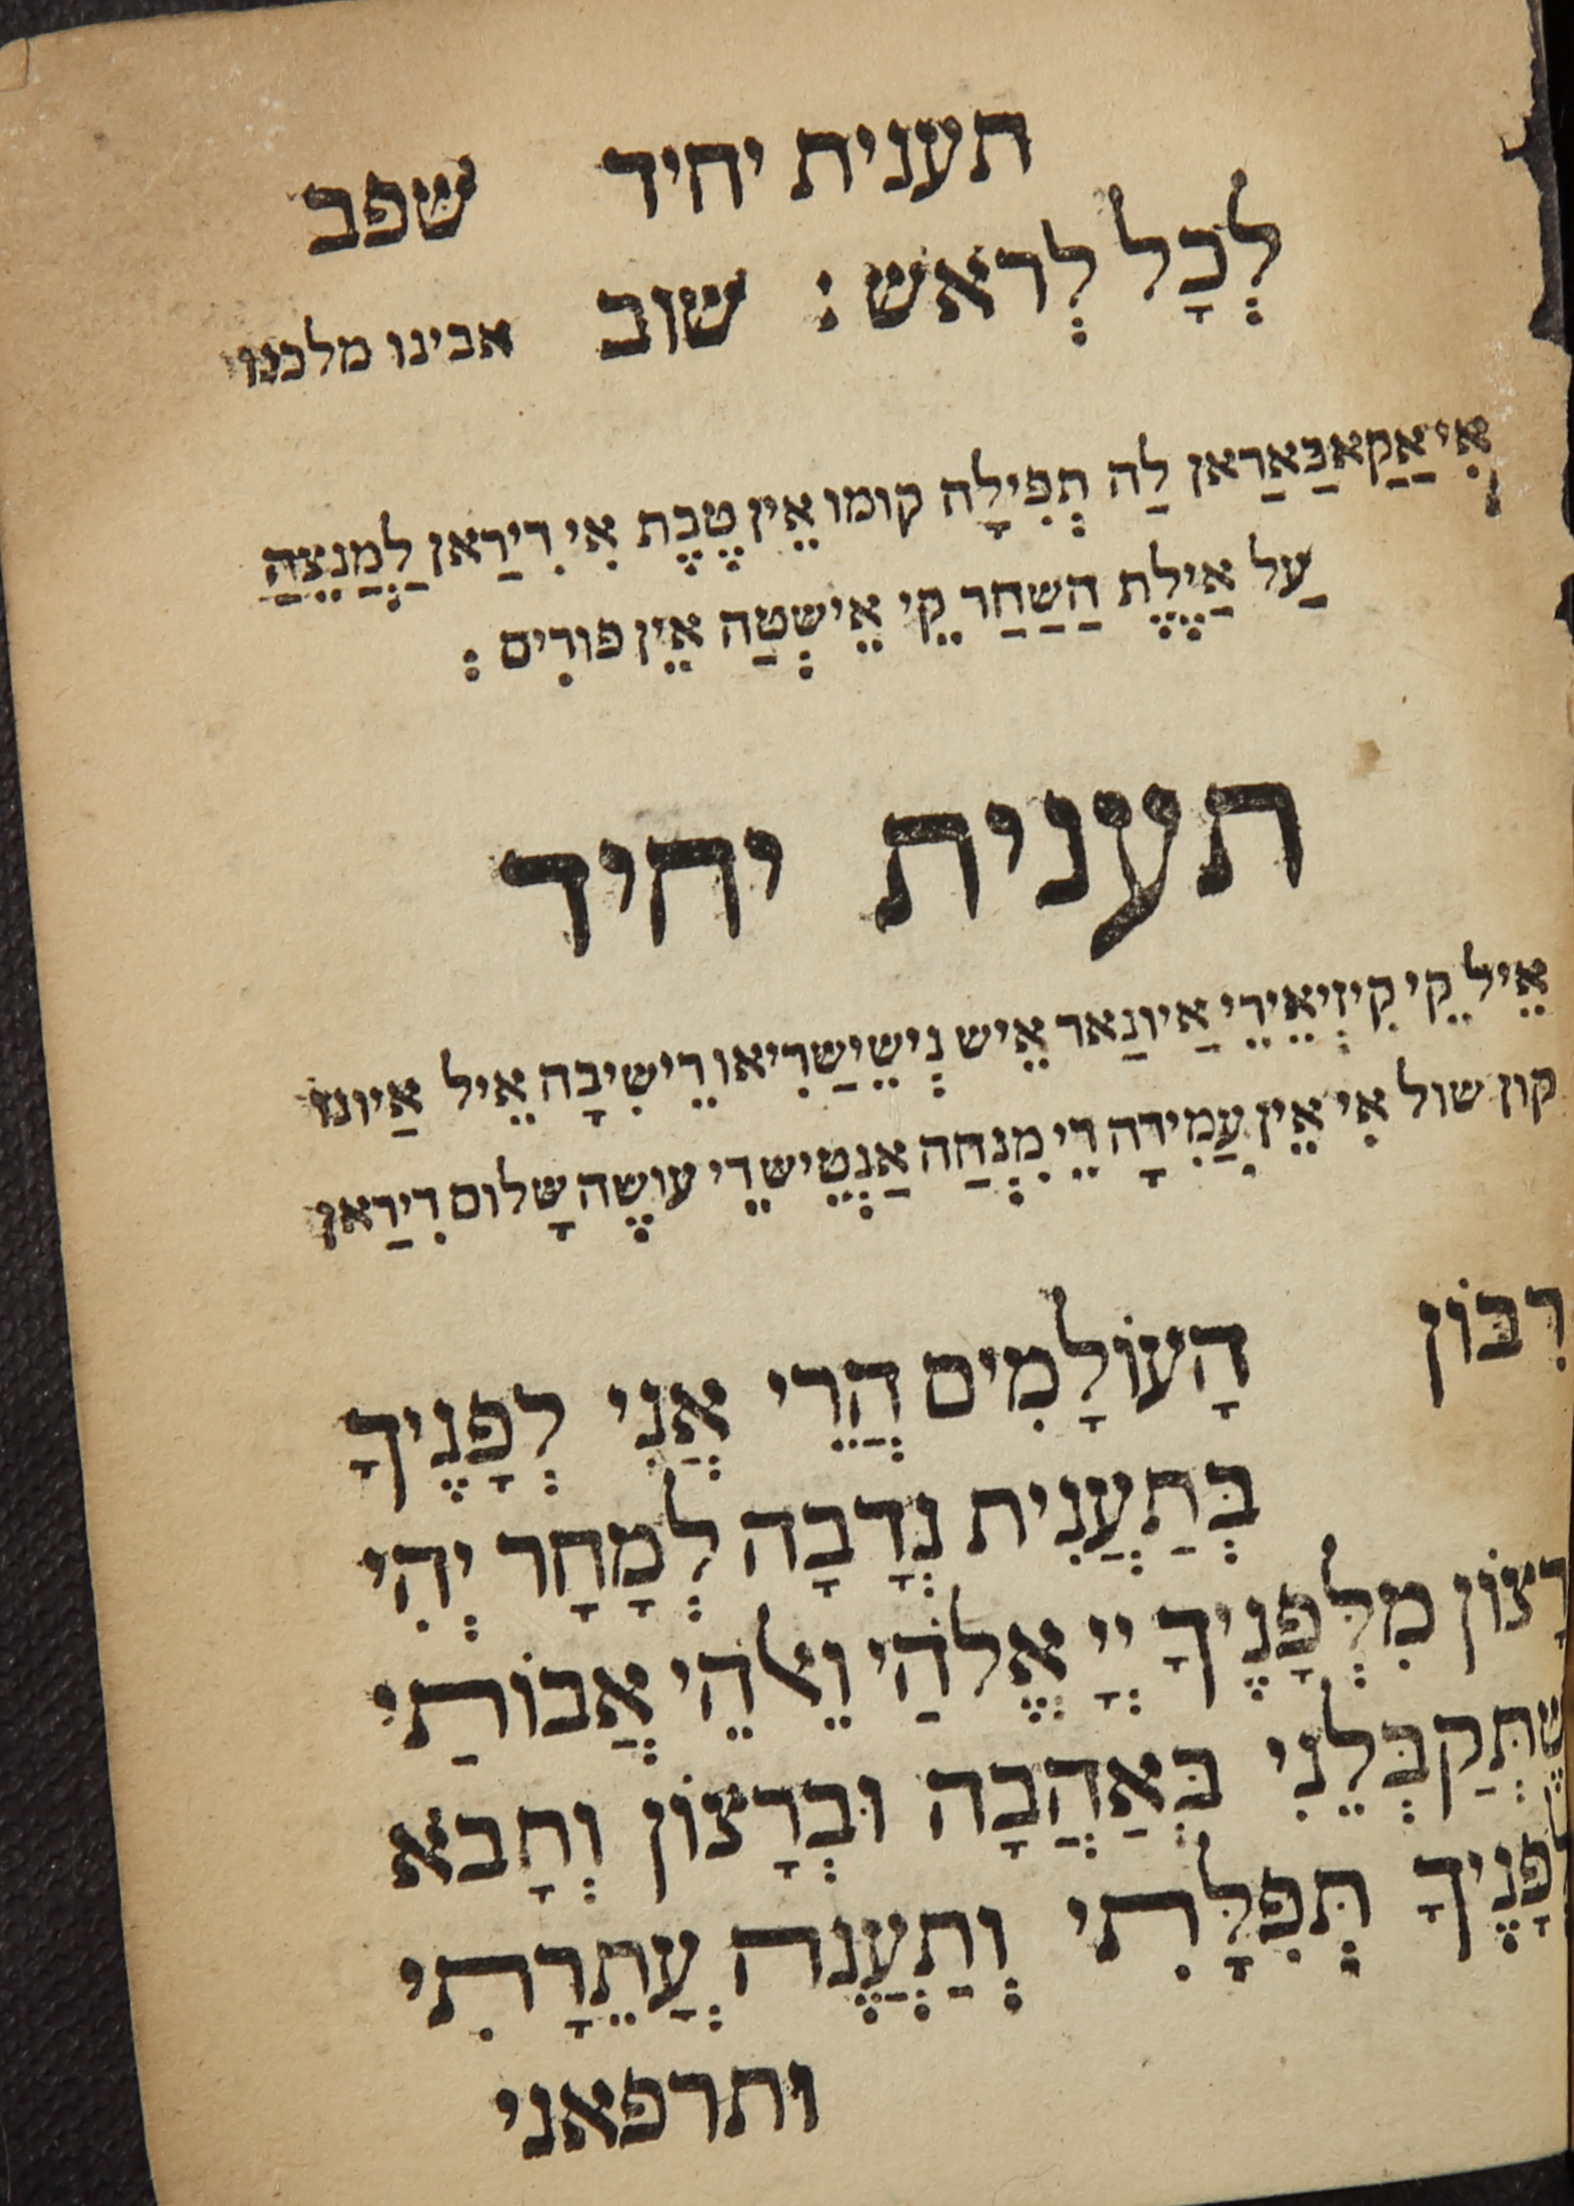 תענית יחיד שפב
לְכָל לְרֹאשׁ : שוב אבינו מלכנו
אִי אַקַאבַּאַרַאן לַה תְפִילָה קומו אֵין טֶבֶת אִי דִירַאן לַמְנַצֵחַ
עַל אַיֶלֶת הַשַחַר קֵי אֵישְטַה אֵין פורִים :
תענית יחיד
אֵיל קֵי קִיזְיאֵירֵי אַיונַאר אֵיש נְישֵישַרִיאו רֵישִיבָה אֵיל אַיונו
קון שול אִי אֵין עֲמִידָה דֵי מִנְחַה אַנְטֵיש דֵי עושֶה שָלום דִירַאן
רִבּוֹן הָעוֹלָמִים הֲרֵי אֲנִי לְפָנֶיךָ
בְּתַעֲנִית נְדָבָה לְמָחָר יְהִי
רָצוֹן מִלְּפָנֶיךָ יְיָ אֱלֹהַי וֵאלֹהֵי אֲבוֹתַי
שֶׁתְּקַבְּלֵנִי בְּאַהֲבָה וּבְרָצוֹן וְתָבֹא
לְפָנֶיךָ תְּפִלָּתִי וְתַעֲנֶה עֲתֵרָתִי
ותרפאני